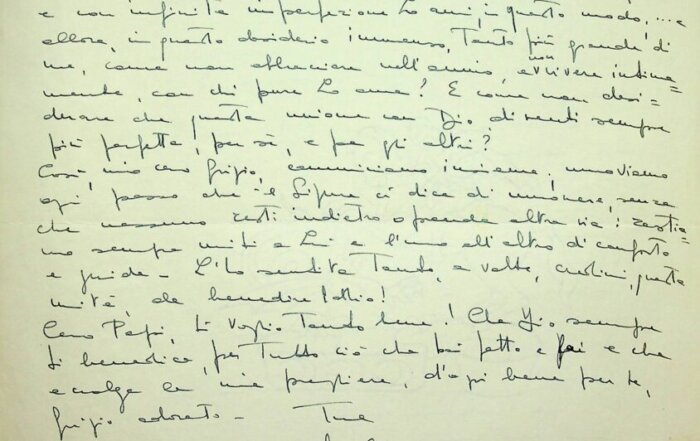 e con infinita imperfezione Lo ami, in questo modo, ... e
allora, in questo desiderio immenso, Tanto più grande di
me, come non abbracciare nell'animo, e vivere intima=
non
mente, con chi pure Lo ama? E come non desi=
derare che questa unione con Dio, diventi sempre
più perfetta, per sé, e per gli altri?
Così, mio caro Grigio, camminiamo insieme, muoviamo
ogni passo che il Signore ci dice di muovere, senza
che nessuno resti indietro o prenda altra via: restia=
mo sempre uniti a Lui e l'uno all'altro di conforto
e guida - L'ho sentita Tanto, a volte, questa
unità, da benedire Iddio!
Caro Papi, ti voglio Tanto bene! Che Dio sempre
ti benedica, per Tutto ciò che hai fatto e fai e che
accolga la mia preghiera, d'ogni bene per te,
Grigio adorato - Tua